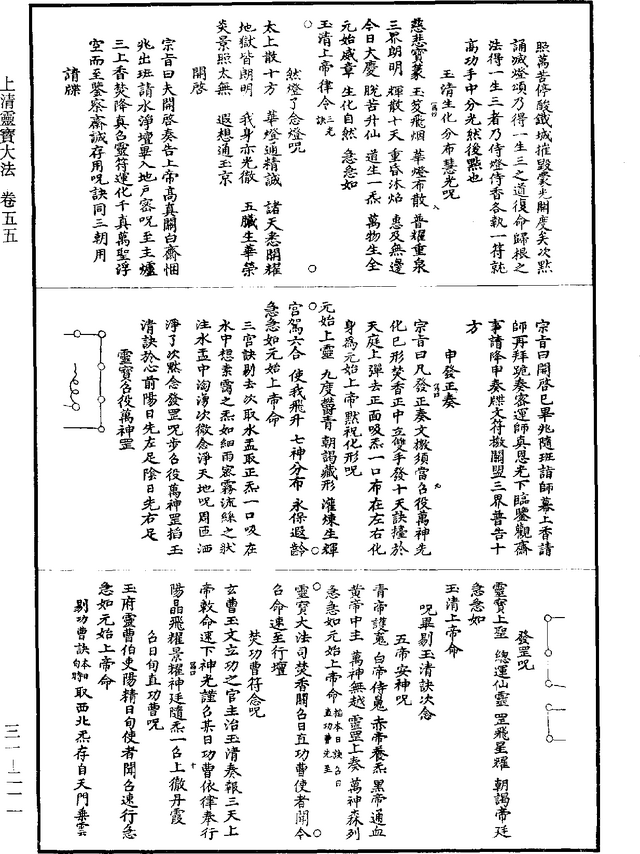 上清靈寶大法　卷五五
三一—二一一
照萬苦停酸鐵城摧毀蒙光開度矣次點
誦滅燈頌乃得一生三之道復命歸根之
法得一生三者乃侍燈侍香各執一符就
高功手中分光然後點也
玉清生化分布慧光呪
慈悲寶篆　玉芨飛烟　華燈布散　普耀重泉
三界朗明　輝散十天　重昏沐焰　惠及無邊
今日大慶　脫苦升仙　道生一炁　萬物生全
元始威章　生化自然　急急如
玉清上帝律令
然燈了念燈呪
太上散十方　華燈通精誠　諸天悉開耀
地獄皆朗明　我身亦光徹　五臟生華榮
炎景照太無　遐想通玉京
開啓
宗旨曰夫開啓奏告上帝高真關白齋悃
兆出班請水淨壇畢入地戶密呪至主爐
三上香焚降真召靈符運化千真萬聖浮
空而至鑒察齋誠存用呪訣同三朝用
請牒
宗旨曰開啓已畢兆隨班詣師幕上香請
師再拜跪奏客運師真恩光下臨鑒觀齋
事請降申奏牒文符檄關盟三界普告十
方
申發正奏
宗旨曰凡發正奏文檄須當召役萬神先
化已形焚香正中立雙手發十天訣擡於
天庭上彈去正面吸炁一口布在左右化
身為元始上帝默祝化形呪
元始上靈　九度鬱青　朝謁藏形　灌煉生輝
宮駕六合　使我飛升　七神分布　永保遐齡
急急如元始上帝命
三宮訣剔去次取水盂取正炁一口吸在
水中想紫靄之炁如細雨密霧流絲之狀
注水盂中洶湧次微念淨天地呪周匝洒
淨了次點念發罡呪步召役萬神罡掐玉
清訣於心前陽日先左足陰日先右足
靈寶召役萬神罡
發罡呪
靈寶上聖　總運仙靈　罡飛星耀　朝謁帝廷
急急如
玉清上帝命
呪畢剔玉清訣次念
五帝安神呪
青帝護魂　白帝侍魄　赤帝養炁　黑帝通血
黃帝中主　萬神無越　靈罡上奏　萬神森列
急急如元始上帝命
靈寶大法司焚香關召日直功曹使者開今
召命速至行壇
焚功曹符念呪
玄曹玉文立功之官主治玉清奏報三天上
帝敕命運下神光謹召某日功曹依律奉行
陽晶飛耀景耀神廷隨炁一召上徹丹霞
召日旬直功曹呪
玉府靈曹伯吏陽精日旬使者聞召速行急
急如元始上帝命
取西北炁存自天門乘雲